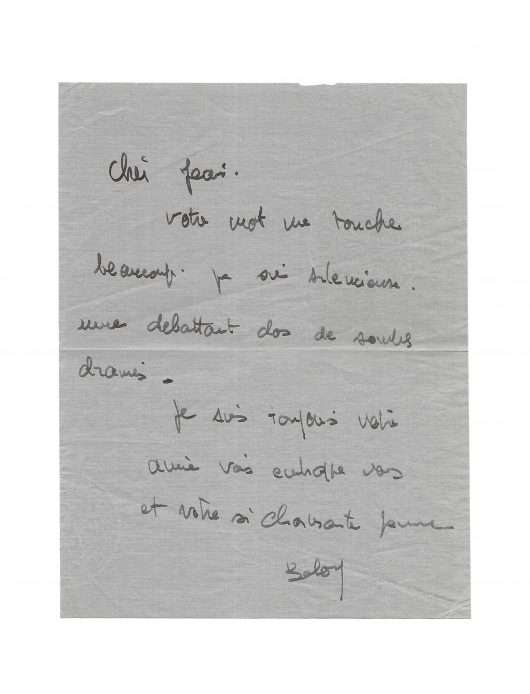 Cher Jean.
votre mot me touche
beaucoup. je suis silencieuse.
me debattant dans de sombres
drames.
je suis toujours votre
amie vous embrasse vous
et votre si charmante femme